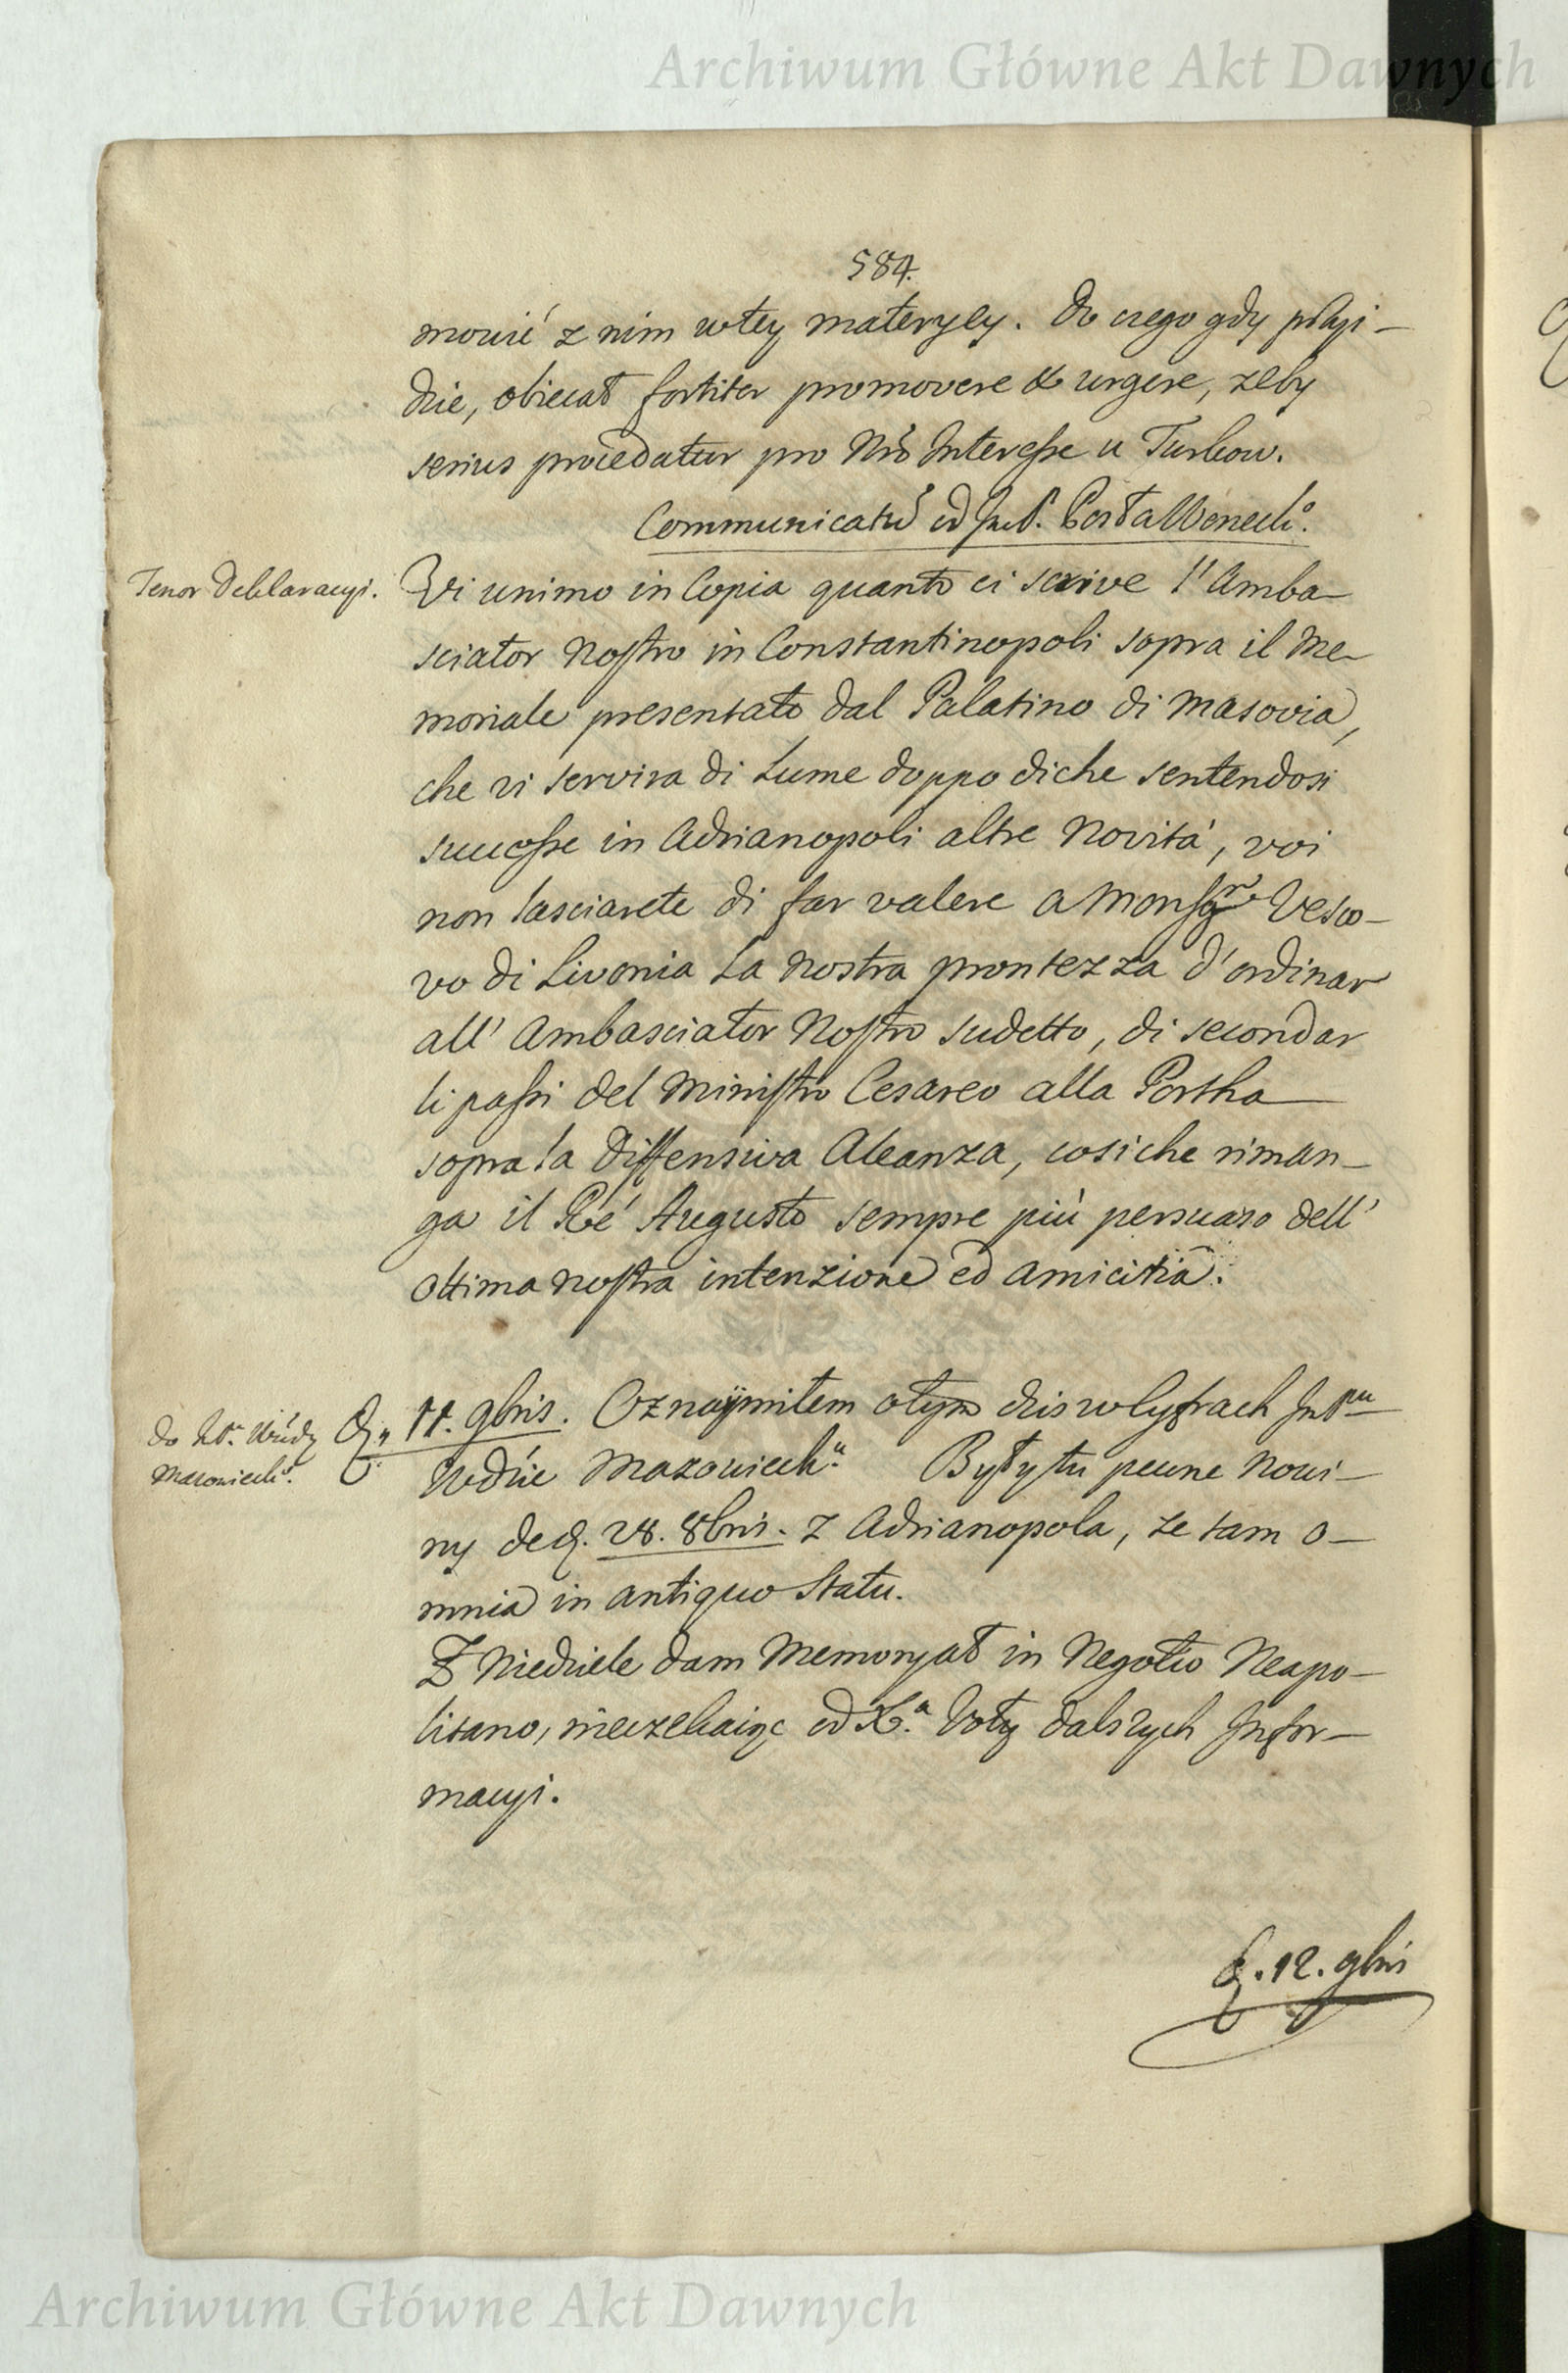 Archiwum Główne Akt Dawnych
584.
mowić z nim wtey materyey. Do czego gdy przyi-
dzie, obiecał fortiter promovere & urgere, zeby
serius procedatur pro Nrõ Interesse u Turkow.
Communicatũ od Posła Weneck:º
Tenor Deklaracyi.
Vi unimo in Copia quanto ci scrive l'Amba-
sciator Nostro in Constantinopoli sopra il Me-
moriale presentato dal Palatino di Masovia,
che vi servira di Lume doppo diche sentendosi
successe in Adrianopoli altre Novità, voi
non lasciarete di far valere a Monsgre Vesco-
vo di Livonia La nostra prontezza d'ordinar
all' Ambasciator Nostro sudetto, di secondar
li passi del Ministro Cesareo alla Portha
sopra la Diffensiva Aleanza, cosiche riman-
ga il Ré Augusto sempre più persuaso dell'
ottima nostra intenzione ed amicitia.
do Wdy
Mazowieck:º
11. 9bris. Oznaymiłem otym dzis wlyfrach
Wdzie Mazowieck:u Były tu pewne Nowi-
ny de 28. 8bris. z Adrianopola, ze tam o-
mnia in antiquo Statu.
Z Niedziele dam Memoryał in Negotio Neapo-
litano, nieczekaiąc od Woły dalszych Infor-
macyi.
12. 9bris
Archiwum Główne Akt Dawnych